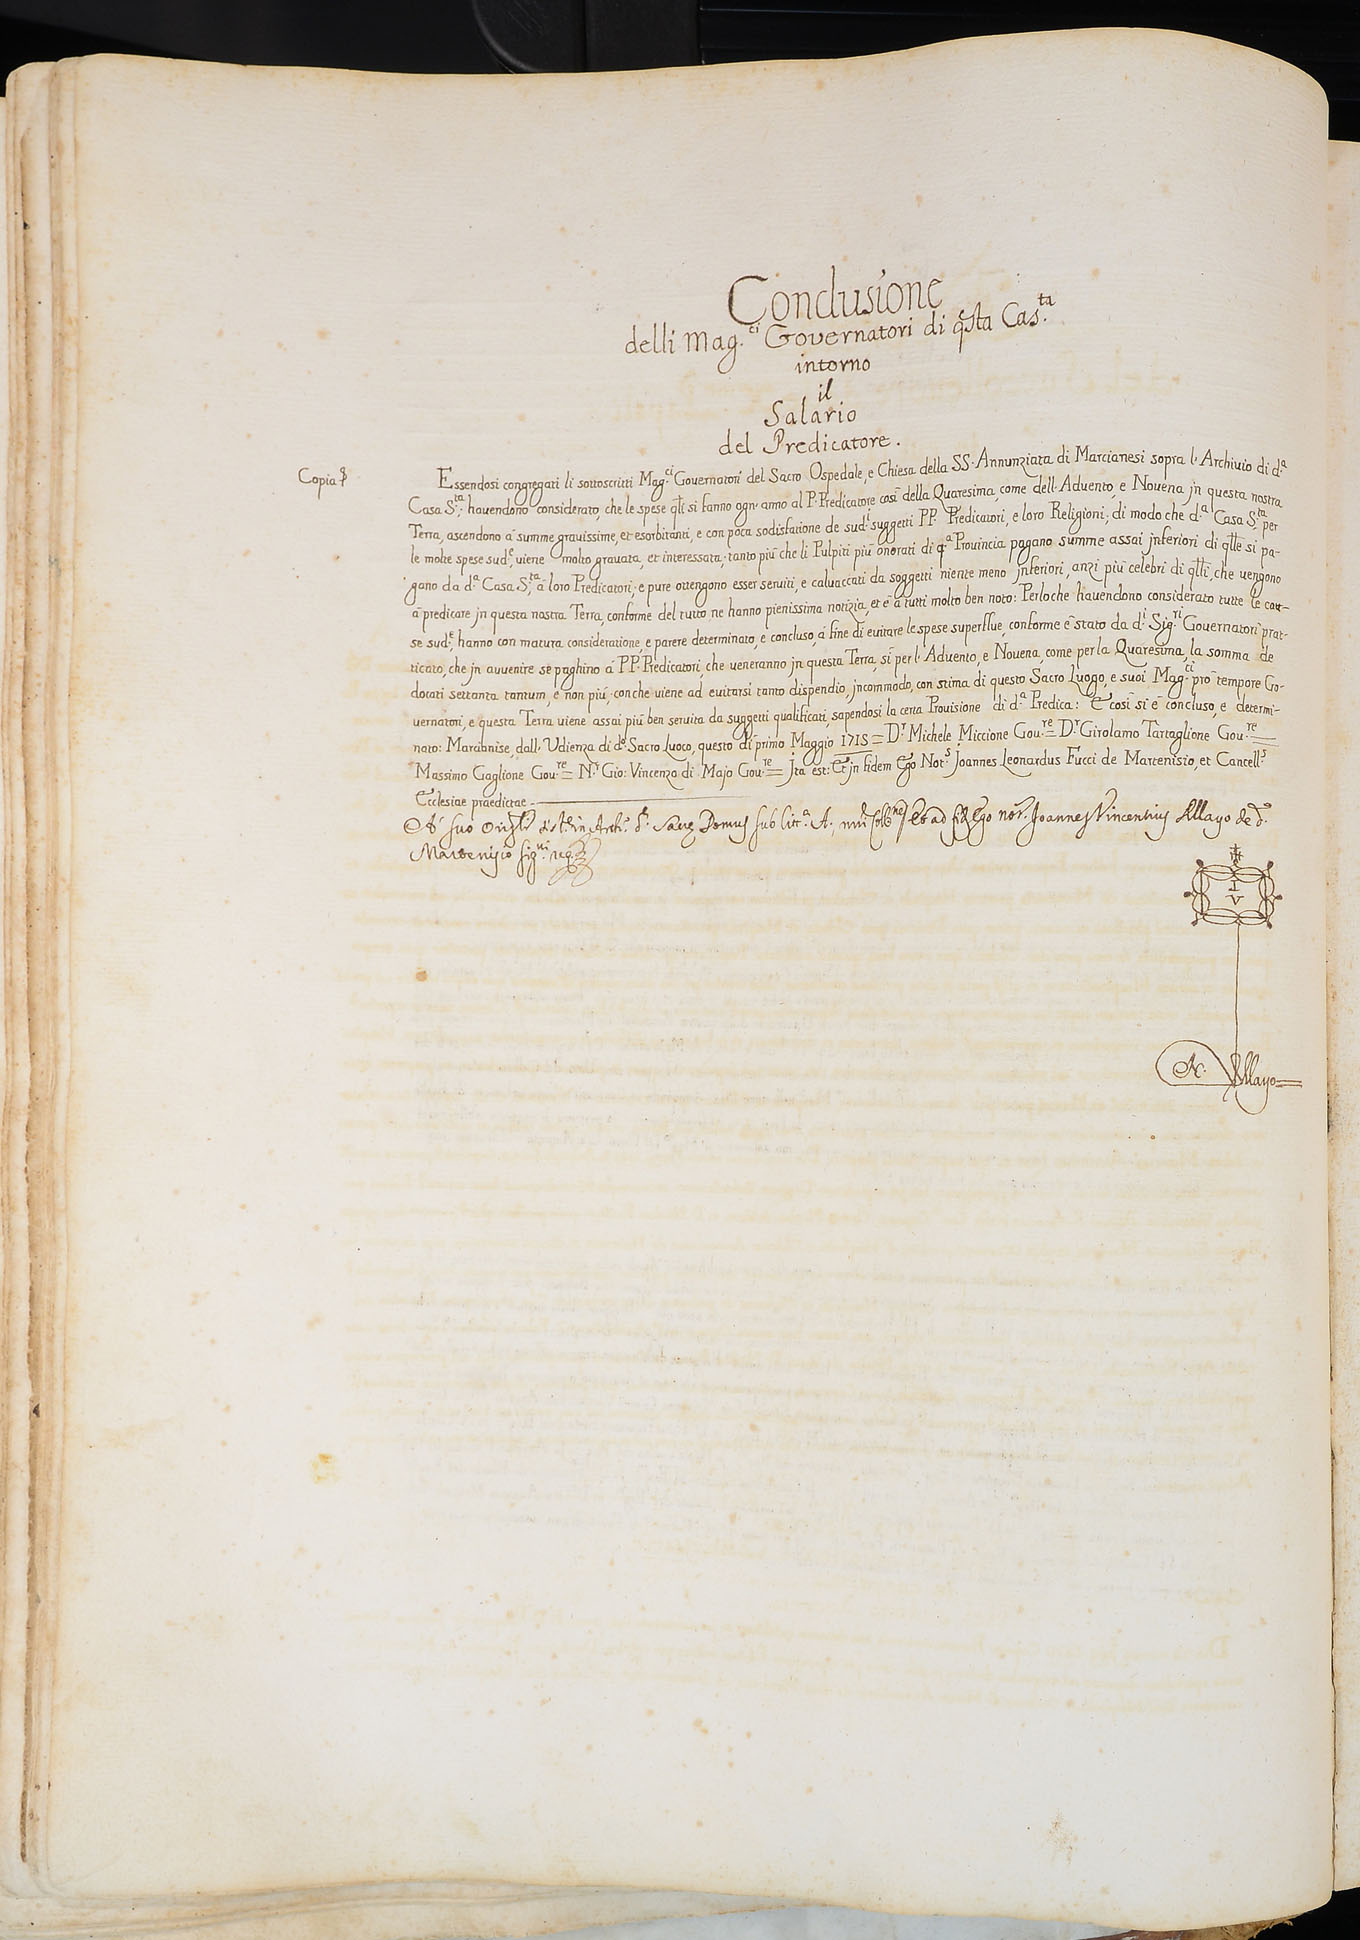 Conclusione
delli Mag.ci Governatori di q̃sta Cas.ta
intorno
il
Salario
del Predicatore.
Copia
Essendosi congregati li sottoscritti Mag.ci Governatori del Sacro Ospedale, e Chiesa della SS. Annunziata di Marcianesi sopra l'Archivio di d.a
Casa S.ta; havendono considerato, che le spese q̃li si fanno ogn'anno al P. Predicatore così della Quaresima, come dell'Advento, e Novena jn questa nostra
Terra, ascendono à summe gravissime, et esorbitanti, e con poca sodisfatione de sud.i suggetti PP. Predicatori, e loro Religioni; di modo che d.a Casa S.ta per
le molte spese sud.e, viene molto gravata, et interessata; tanto più che li Pulpiti più onorati di q.a Provincia pagano summe assai jnferiori di q̃lle si pa-
gano da d.a Casa S.ta à loro Predicatori; e pure ottengono esser serviti, e calvaccati da soggetti niente meno jnferiori, anzi più celebri di q̃lli, che vengono
à predicare jn questa nostra Terra, conforme del tutto ne hanno pienissima notizia, et è à tutti molto ben noto: Perloche havendono considerato tutte le cau-
se sud.e, hanno con matura consideratione, e parere determinato, e concluso, à fine di evitare le spese superflue, conforme è stato da d.i Sig.ri Governatori prat-
ticato, che jn avvenire se paghino à PP. Predicatori, che veneranno jn questa Terra, sì per l'Advento, e Novena, come per la Quaresima, la somma de
docati settanta tantum, e non più; con che viene ad evitarsi tanto dispendio, jncommodo, con stima di questo Sacro Luogo, e suoi Mag.ci prò tempore Go-
vernatori, e questa Terra viene assai più ben servita da suggetti qualificati, sapendosi la certa Provisione di d.a Predica: E così si è concluso, e determi-
nato: Marabnise, dall'Udienza di d.o Sacro Luoco, questo dì primo Maggio 1715 = D.r Michele Miccione Gov.re = D.r Girolamo Tartaglione Gov.re =
Massimo Gaglione Gov.re = N.r Gio: Vincenzo di Majo Gov.re = Jta est: Et jn fidem Ego Not.s Joannes Leonardus Fucci de Martenisio, et Cancell.s
Ecclesiae praedictae
A suo in Arch. Domus sub litt.a A, et ad Ego not. Joannes Vincentius Allayo de d.o
Martenisio sig.vi
I
V
N. Allayo